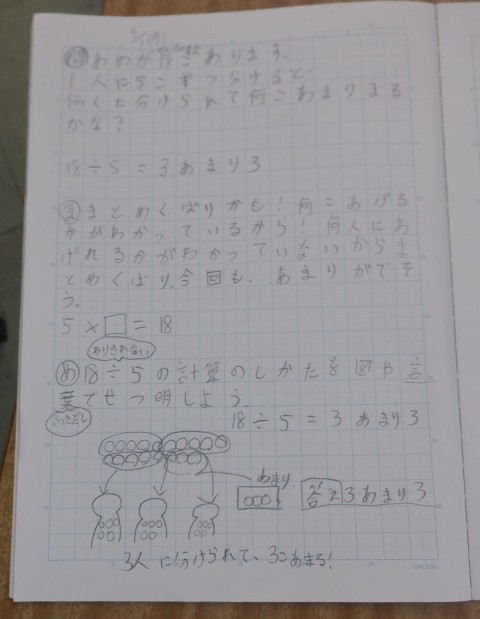 問 あめが18こあります。
1人に5こずつ分けると、
何人に分けられて何こあまりまる
かな？
18÷5=3あまり3
ま まとめくばりかも！何こあげる
かがわかっているから！何人にあ
げれるかがわかっていないからま
とめくばり、今回も、あまりがでそ
う。
5×□=18
わりきれない
め 18÷5の計算のしかたを図や言
葉でせつ明しよう。
ふきだし
18÷5=3あまり3
あまり
答え3あまり3
3人に分けられて、3こあまる！